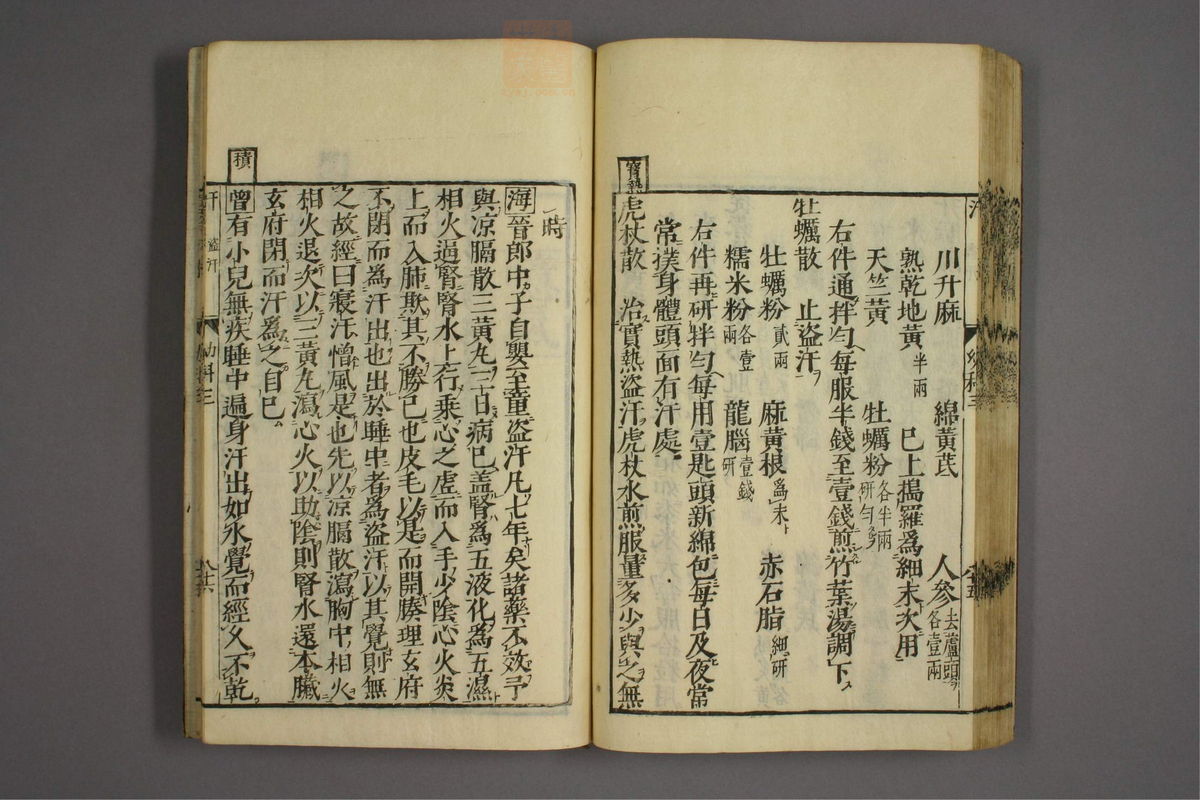 川升麻 綿黃芪 人參去蘆頭各壹兩
熟乾地黃半兩 已上搗羅為細末次用
天竺黃 牡蠣粉各半兩研勻
右件通拌勻每服半錢至壹錢煎竹葉湯調下
牡蠣散 止盜汗
牡蠣粉貳兩 麻黃根為末 赤石脂細研
糯米粉各壹兩 龍腦壹錢研
右件再研拌勻每用壹匙頭新綿包每日及夜常
常撲身體頭面有汗處
實熱
虎杖散 治實熱盜汗虎杖水煎服量多少與之無
時
海晉郎中子自嬰至童盜汗凡七年矣諸藥不效予
與凉膈散三黃丸三日病已盖腎爲五液化為五濕
相火逼腎腎水上行乘心之虛而入手少陰心火炎
上而入肺欺其不勝已也皮毛以是而開腠理玄府
不閉而為汗出也出於睡中者為盜汗以其覺則無
之故經曰寢汗憎風是也先以凉膈散瀉胸中相火
相火退次以三黃丸瀉心火以助陰則腎水還本臟
玄府閉而汗爲之自已
積
曾有小兒無疾睡中遍身汗出如水覺而經久不乾
汗 盜汗 幼科三 八十六